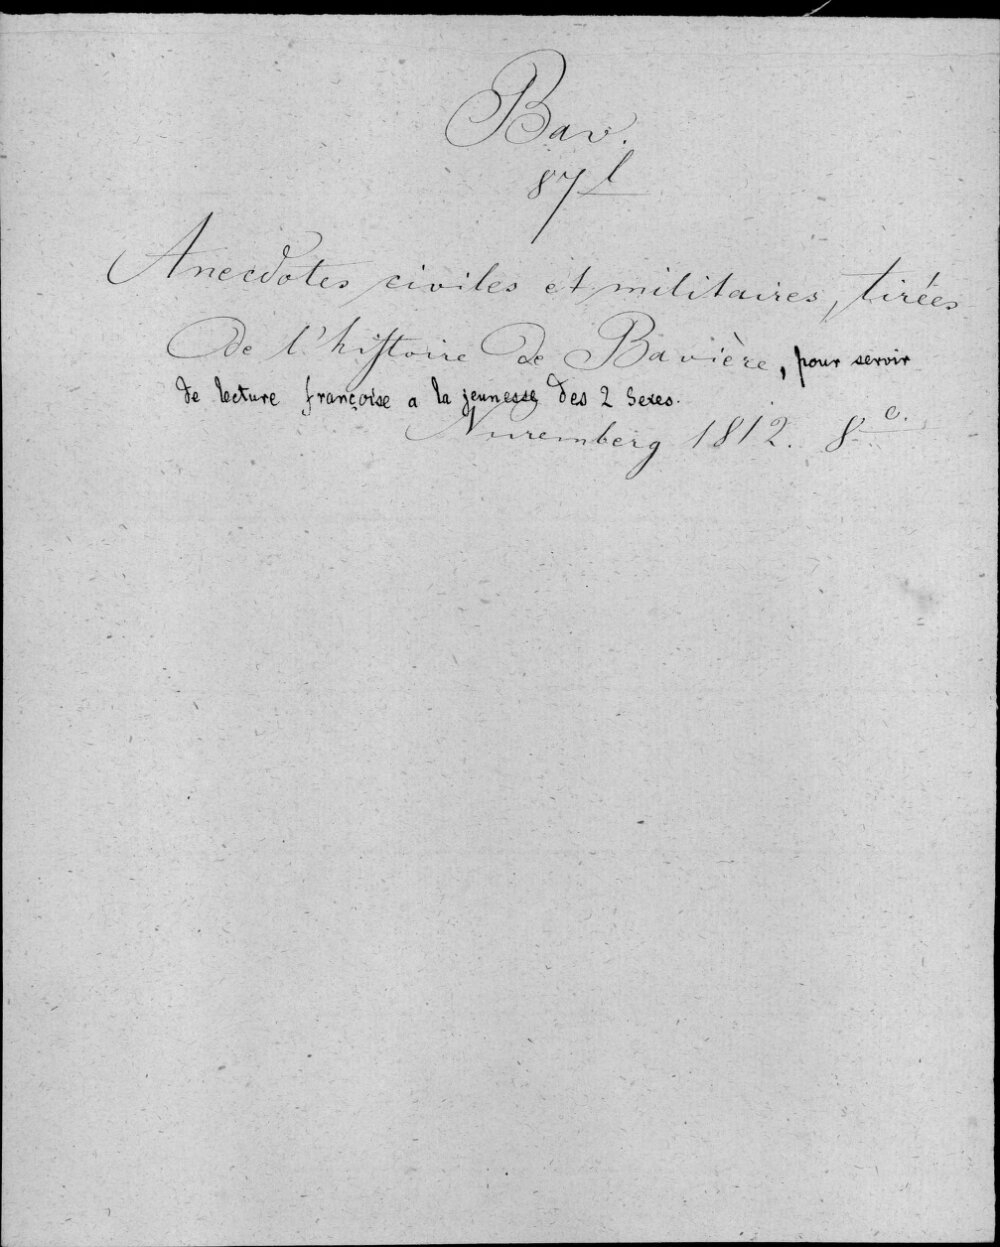 Bav.
87 l
Anecdotes civiles et militaires, tirées
de l'histoire de Bavière, pour servir
de lecture françoise a la jeunesse des 2 Sexes.
Nuremberg 1812. 8º.